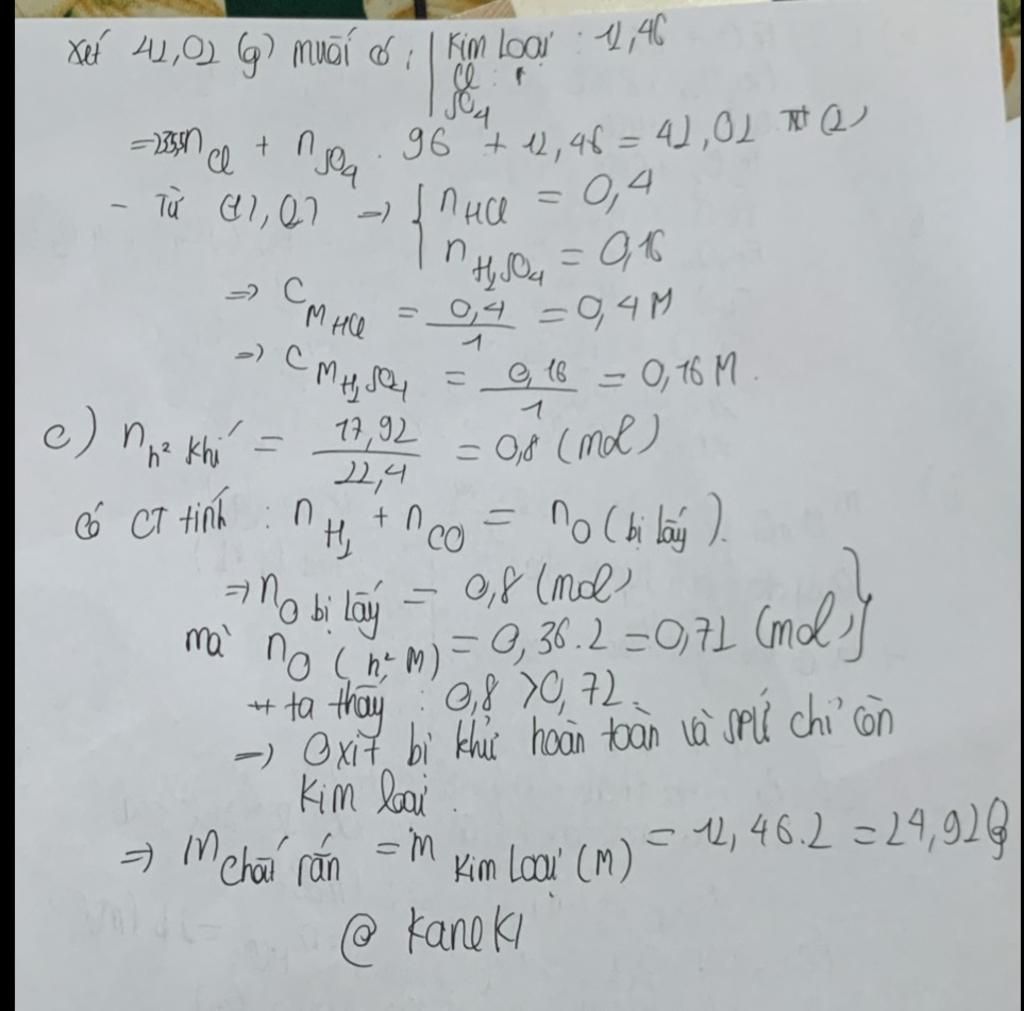 Xét 42,02 (g) muối có : Kim Loại : 12,46
Cl :
SO4
=> 35,5 nCl + nSO4 . 96 + 12,46 = 42,02 (2)
- Từ (1), (2) => { nHCl = 0,4
nH2SO4 = 0,16
=> CM HCl = 0,4/1 = 0,4 M
=> CM H2SO4 = 0,16/1 = 0,16 M.
c) n h² khí = 17,92/22,4 = 0,8 (mol)
Có CT tính : nH2 + nCO = nO (bị lấy).
=> nO bị lấy = 0,8 (mol)
mà nO (h² M) = 0,36.2 = 0,72 (mol)
ta thấy : 0,8 > 0,72.
=> Oxit bị khử hoàn toàn và spứ chỉ còn
Kim loại.
=> m chất rắn = m Kim Loại (M) = 12,46.2 = 24,92g
@ Kaneki